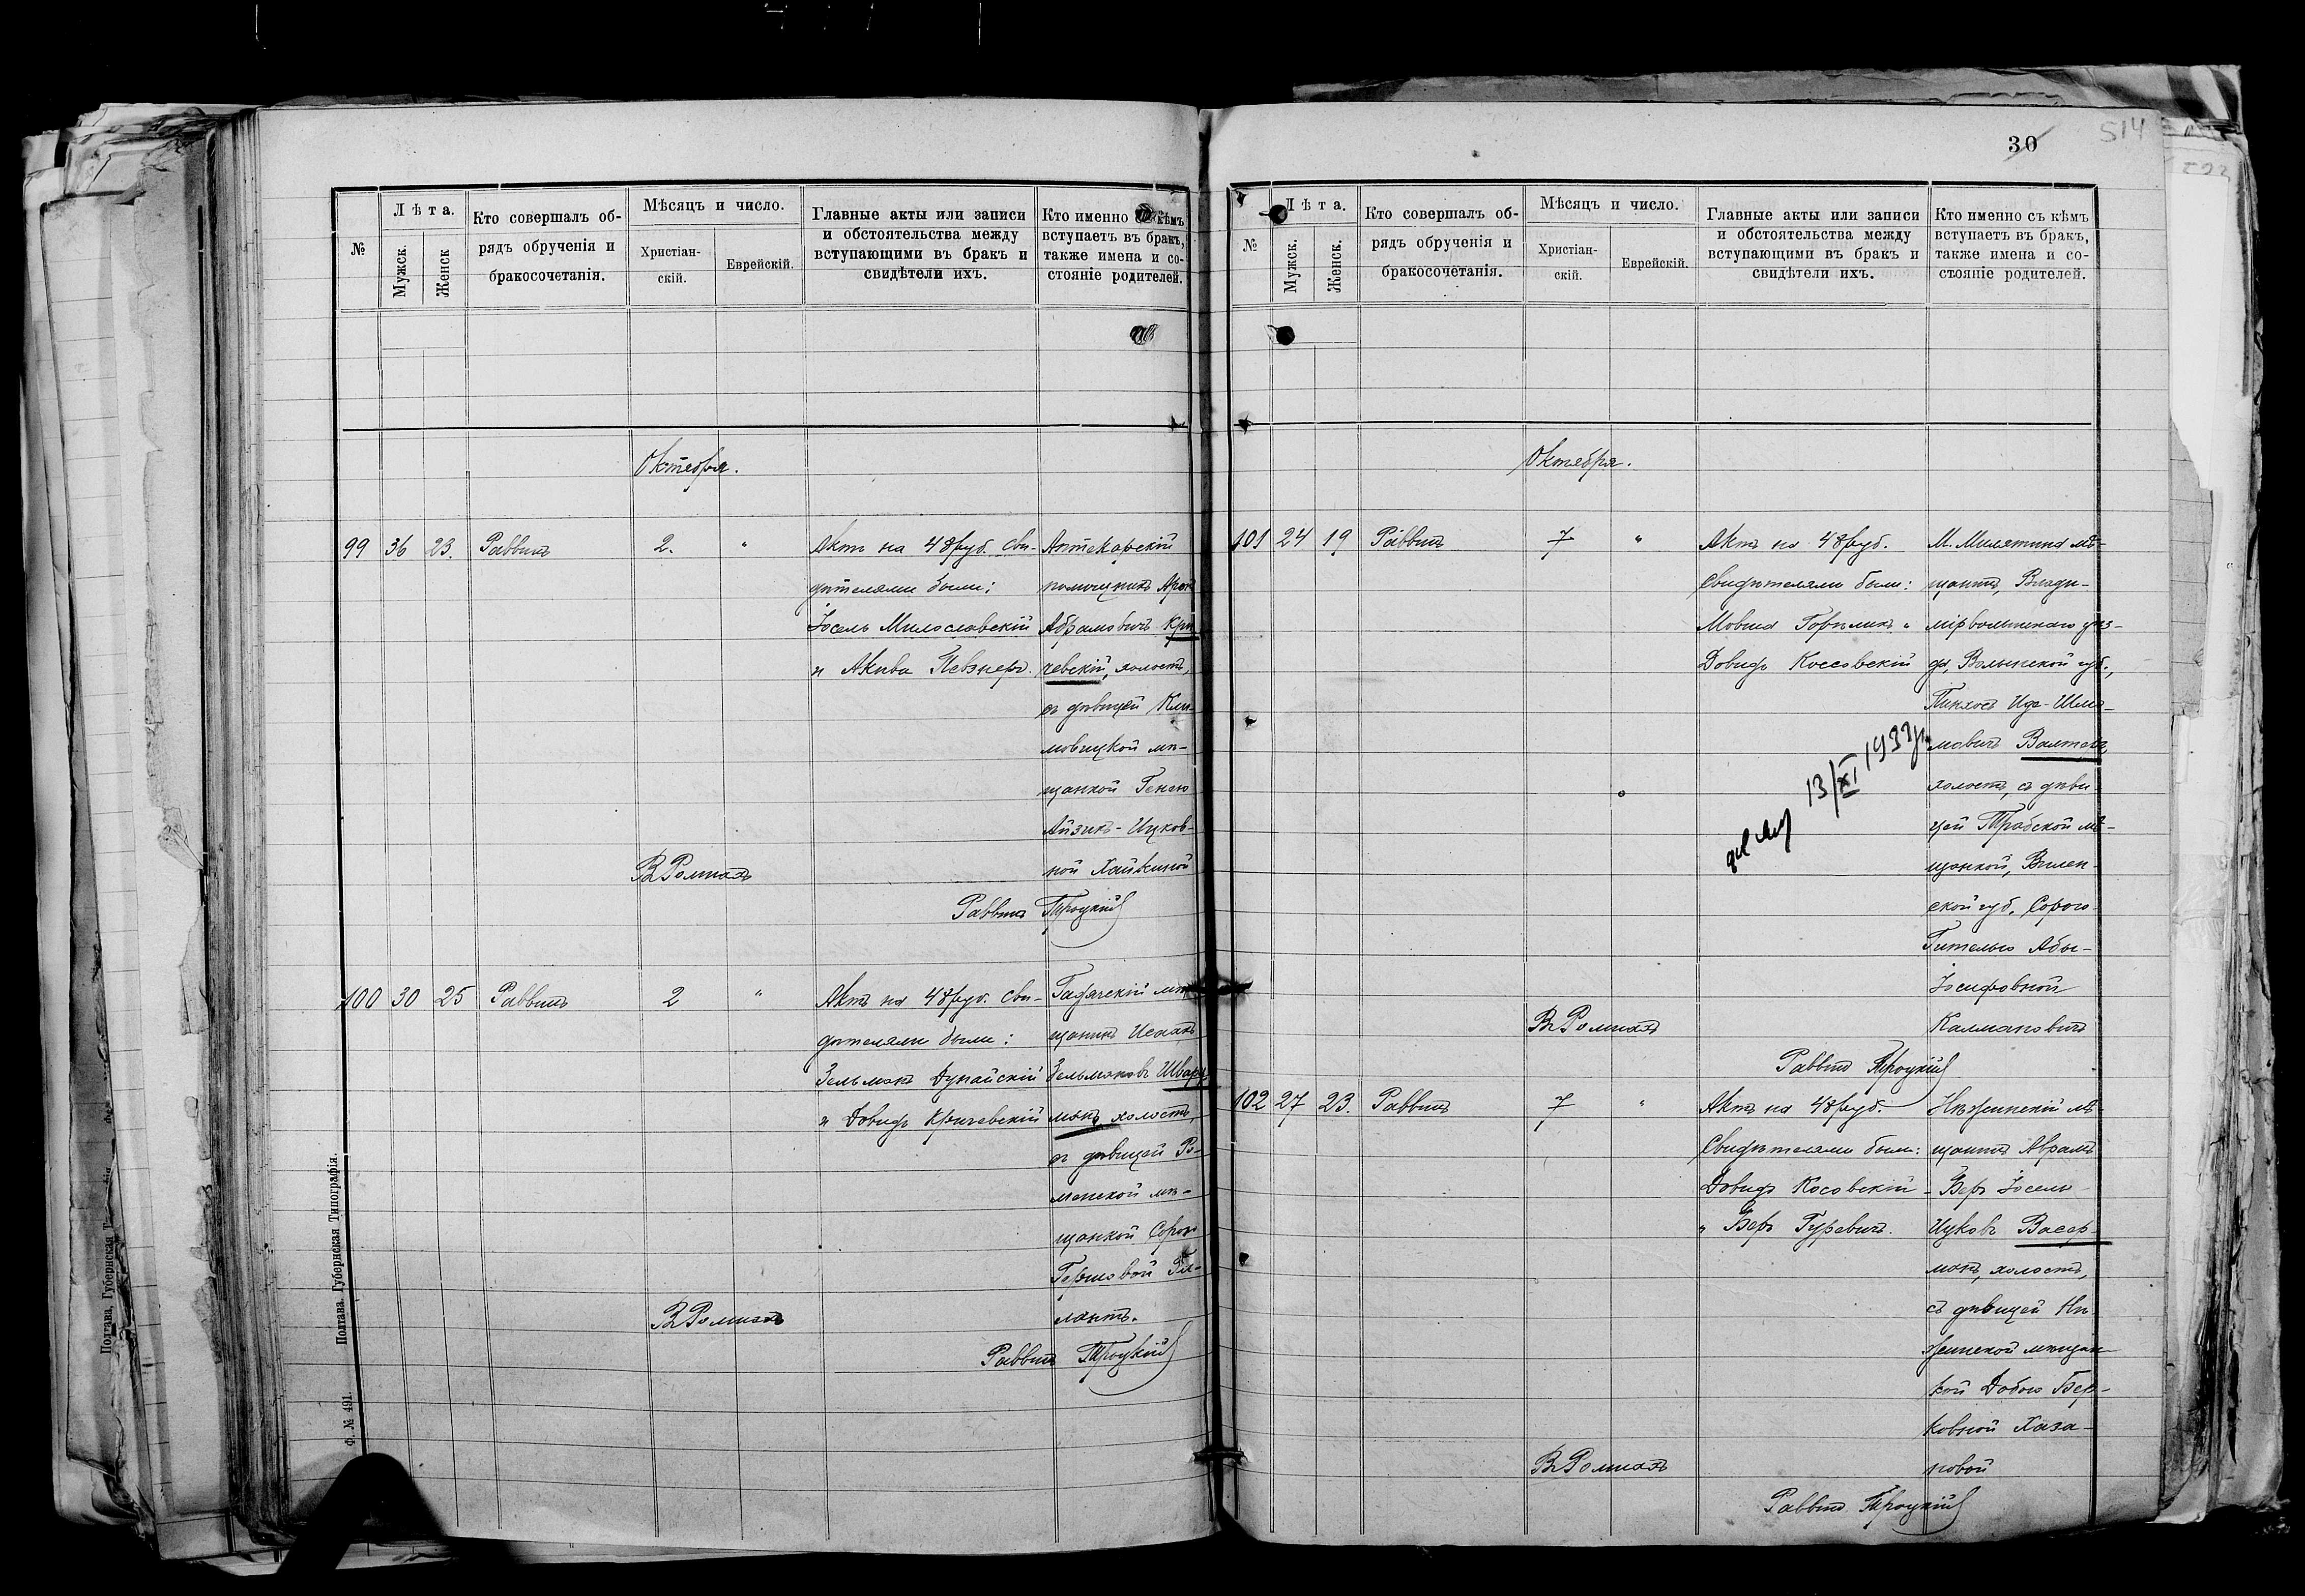 №
Лѣта.
Мужск.
Женск
Кто совершалъ об-
рядъ обрученія и
бракосочетанія.
Мѣсяцъ и число.
Христіан-
скій.
Еврейскій.
Главные акты или записи
и обстоятельства между
вступающими въ бракъ и
свидѣтели ихъ.
Кто именно съ кѣмъ
вступаетъ въ бракъ,
также имена и со-
стояніе родителей.
Октября.
99 36 23. Раввинъ 2. "
Актъ на 48 руб. Сви-
дѣтелями были:
Іосель Милославскій
и Акива Певзнеръ.
Аптекарскій
помощникъ Аронъ
Абрамовичъ Кри
чевскій, холостъ,
съ дѣвицей Кли-
мовицкой мѣ-
щанкой Генею
Айзикъ-Ицков-
ной Хайкиной
Въ Ромнахъ
Раввинъ Троцкій
100 30 25 Раввинъ 2 "
Актъ на 48 руб. Сви-
дѣтелями были:
Зельманъ Дунайскій
и Довидъ Кричевскій
Гадячскій мѣ-
щанинъ Исаакъ
Зельмановъ Шварц
манъ, холостъ,
съ дѣвицей Ро-
менской мѣ-
щанкой Сорою
Гершовой Га-
лантъ.
Въ Ромнахъ
Раввинъ Троцкій
Ф. № 491. Полтава. Губернская Типографія.
Полтава, Губернская
30
514
№
Лѣта.
Мужск.
Женск.
Кто совершалъ об-
рядъ обрученія и
бракосочетанія.
Мѣсяцъ и число.
Христіан-
скій.
Еврейскій.
Главные акты или записи
и обстоятельства между
вступающими въ бракъ и
свидѣтели ихъ.
Кто именно съ кѣмъ
вступаетъ въ бракъ,
также имена и со-
стояніе родителей.
Октября.
101 24 19 Раввинъ 7 "
Актъ на 48 руб.
Свидѣтелями были:
Мовша Горѣликъ и
Довидъ Коссовскій
М. Милятина мѣ-
щанинъ, Влади-
мірволынскаго уѣз-
да, Волынской губ.,
Пинхосъ Ида-Шлио-
мовичъ
холостъ, съ дѣви
цей Трабской мѣ-
щанкой, Вилен-
ской губ. Сорою-
Гителью Абы-
Іосифовной
Калмановичъ
13/XI 1933г.
Въ Ромнахъ
Раввинъ Троцкій
102 27 23. Раввинъ 7 "
Актъ на 48 руб.
Свидѣтелями были:
Довидъ Косовскій
и Беръ Гуревичъ.
Нѣжинскій мѣ-
щанинъ Аврамъ
-Беръ Іосель
Ицковъ Васер-
манъ, холостъ,
съ дѣвицей Нѣ-
жинской мѣщан
кой Добою Бер-
ковной Хаза-
новой
Въ Ромнахъ
Раввинъ Троцкій